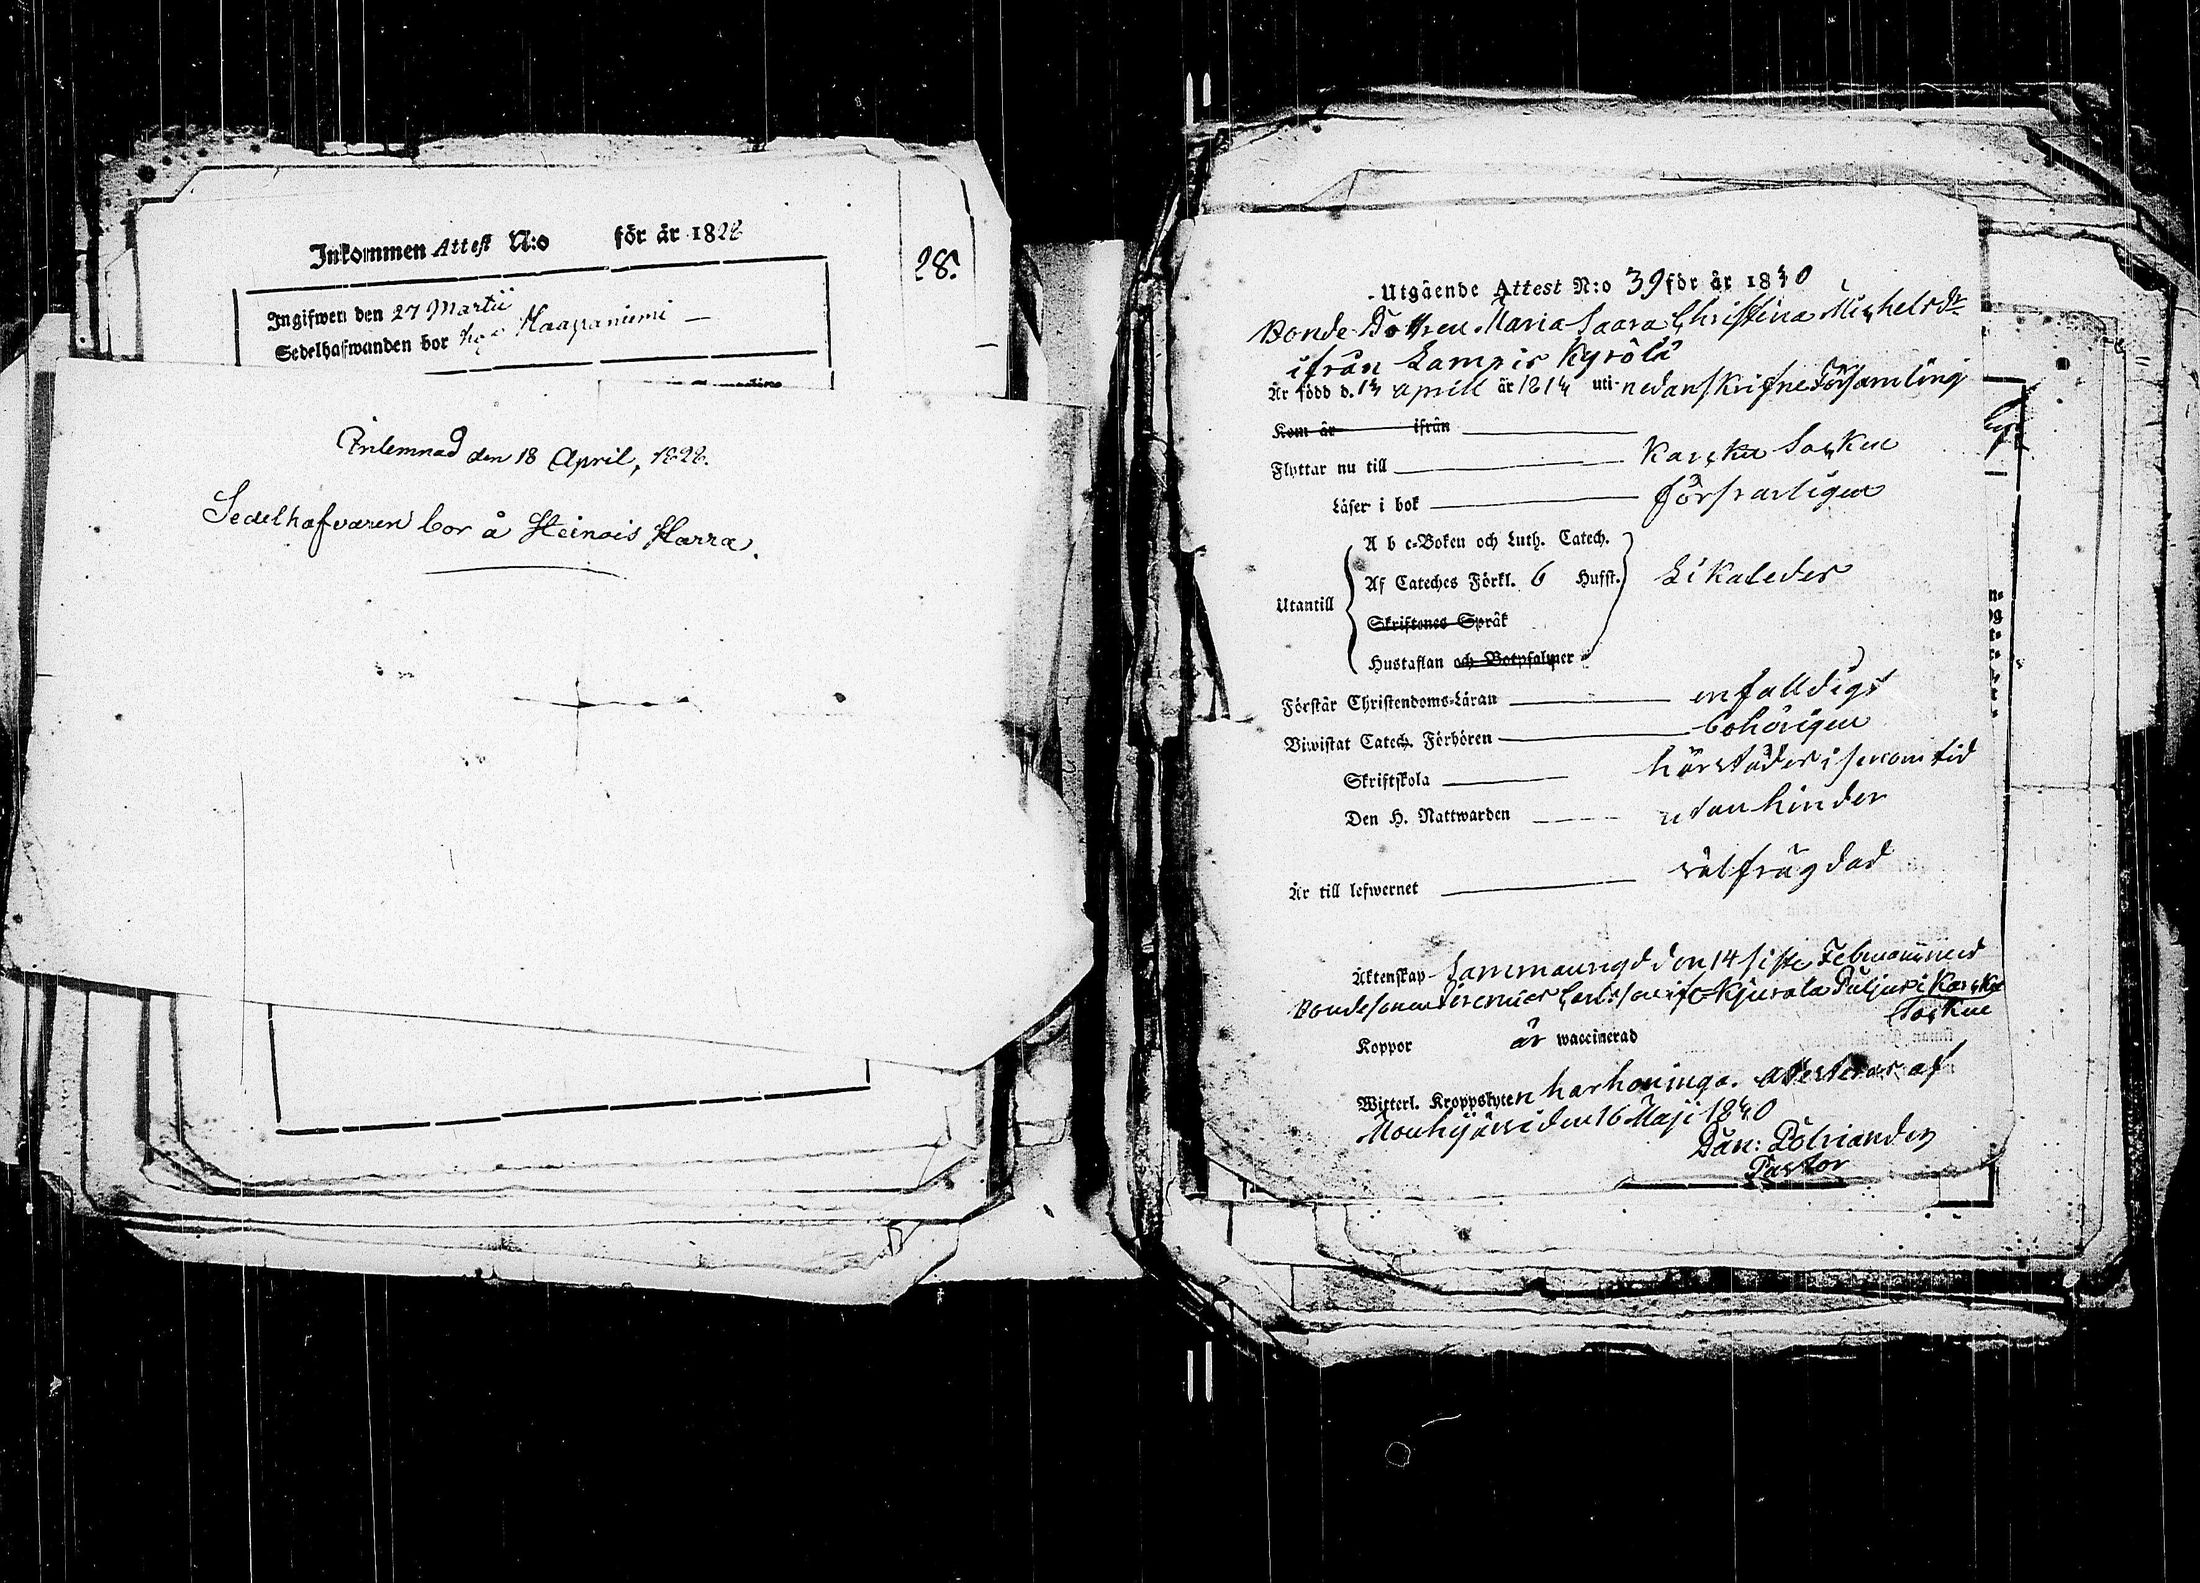 Inkommen Attest N:o för år 1828
28.
Ingifwen den 27 Martii
Sedelhafwanden bor hos Haapaniemi
Inlemnad den 18 April, 1828.
Sedelhafvaren bor å Heinois Harra.
Utgående Attest N:o 39 för år 1840
Bonde Dottren Maria Saara Christina Michelsdr
ifrån Lampis Kyrölä
Är född d. april år 181 uti nedanskrifne Församling
Kom år ifrån
Flyttar nu till Karcku Socken
Läser i bok försvarligen
A b c-Boken och Luth. Catech.
Utantill Af Cateches Förkl. 6 Hufst. Likaledes
Skriftenes Språk
Hustaflan och Botpsalmer
Förstår Christendoms-Läran enfalldigt
Biwistat Catech. Förhören behörigen
Skriftskola härstädes i senom tid
Den H. Nattwarden utan hinder
Är till lefwernet välfrägdad
Äktenskap Sammanvigd den 14 siste Februarii med
Bondesonen Carlsson if Kjurala Puljus i Karcku
Socken
Koppor är waccinerad
Witterl. Kroppslyten har hon inga. Attesteras af
Mouhijärvi den 16 Maji 1840
Dan: Polviander
Pastor